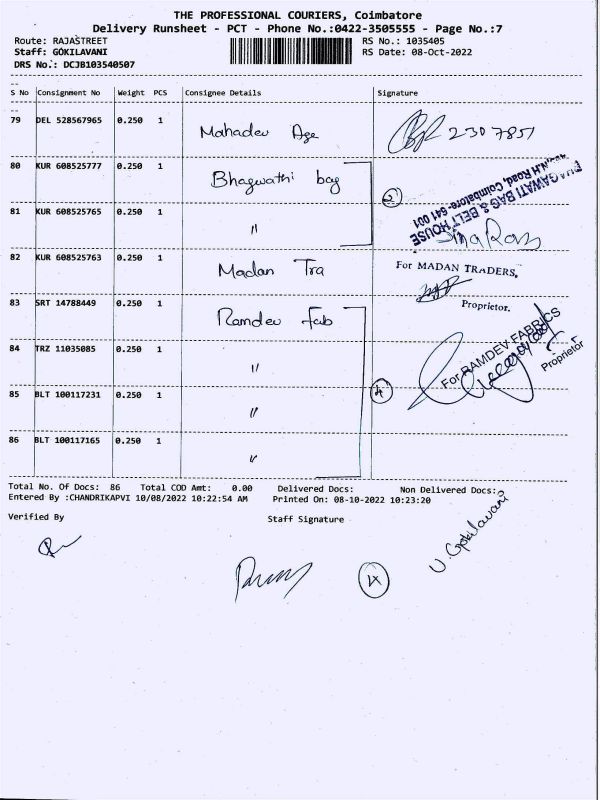 THE PROFESSIONAL COURIERS, Coimbatore
Delivery Runsheet - PCT - Phone No.:0422-3505555 - Page No.:7
Route: RAJASTREET RS No.: 1035405
Staff: GOKILAVANI RS Date: 08-Oct-2022
DRS No.: DCJB103540507
S No Consignment No Weight PCS Consignee Details Signature
79 DEL 528567965 0.250 1 Mahadev Age 2307851
80 KUR 608525777 0.250 1 Bhagwathi bag 2
N.H Road, Coimbatore-641 001
BHAGAWATI BAG & BELT HOUSE
81 KUR 608525765 0.250 1 "
82 KUR 608525763 0.250 1 Madan Tra For MADAN TRADERS,
Proprietor.
83 SRT 14788449 0.250 1 Ramdev Fab
For RAMDEV FABRICS
Proprietor
84 TRZ 11035085 0.250 1 "
85 BLT 100117231 0.250 1 " 4
86 BLT 100117165 0.250 1 "
Total No. Of Docs: 86 Total COD Amt: 0.00 Delivered Docs: Non Delivered Docs:
Entered By :CHANDRIKAPVI 10/08/2022 10:22:54 AM Printed On: 08-10-2022 10:23:20
Verified By Staff Signature
U. Gokilavani